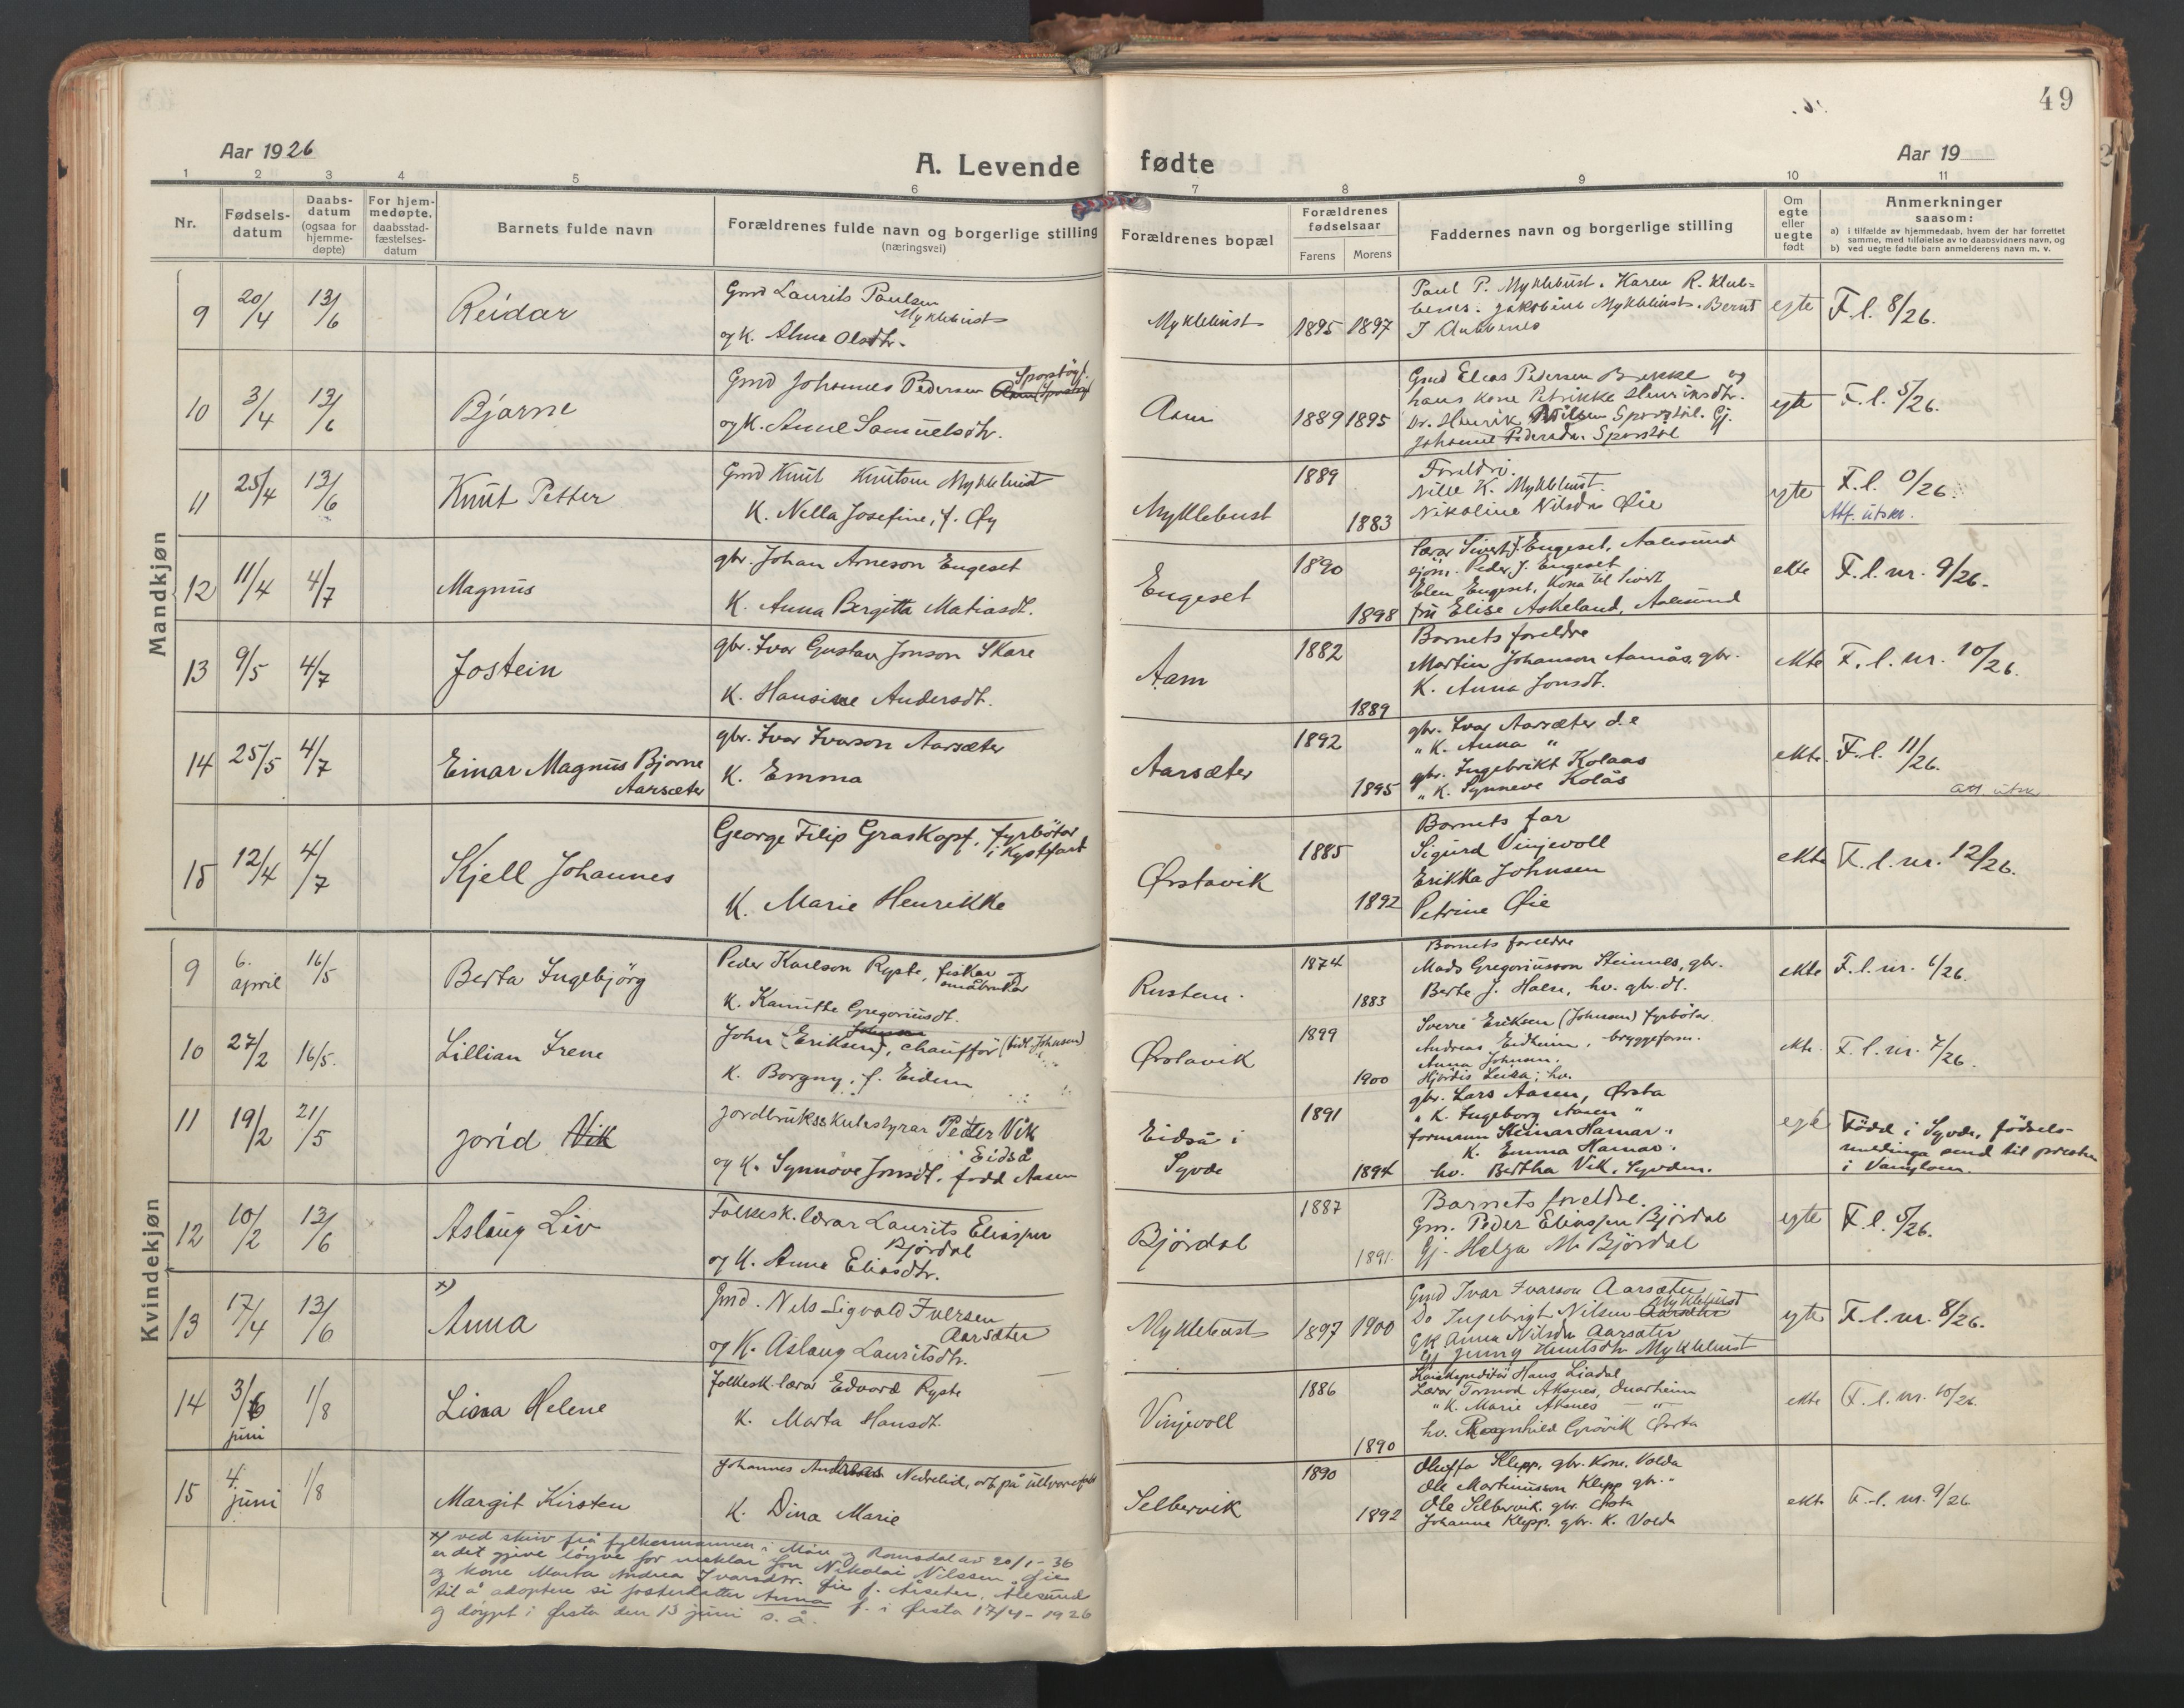 49
Aar 1926
A. Levende fødte
Aar 19
1 2 3 4 5 6 7 8 9 10 11
Nr.
Fødsels-
datum
Daabs-
datum
(ogsaa for
hjemme-
døpte)
For hjem-
medøpte,
daabsstad-
fæstelses-
datum
Barnets fulde navn
Forældrenes fulde navn og borgerlige stilling
(næringsvei)
Forældrenes bopæl
Forældrenes
fødselsaar
Farens Morens
Faddernes navn og borgerlige stilling
Om
egte
eller
uegte
født
Anmerkninger
saasom:
a) i tilfælde av hjemmedaab, hvem der har forrettet
samme, med tilføielse av to daabsvidners navn, og
b) ved uegte fødte barn anmelderens navn m. v.
Mandkjøn
9 20/4 13/6 Reidar
Gmd Laurits Paulsen
Myklebust
og K. Alma Olsdtr.
Myklebust 1895 1897
Paul P. Myklebust. Karen R. Klub-
benes. Jakobine Myklebust. Bernt
J Klubbenes
egte F.l. 8/26.
10 3/4 13/6 Bjarne
Gmd Johannes Pedersen Aam
og K. Anne Samuelsdtr.
Aam 1889 1895
Gmd Elias Pedersen Brekke og
hans kone Petrikke Henriksdtr.
Henrik Nilsen Sporstøl. Gj.
Johanne Pedersdr. Sporstøl
egte F.l. 5/26.
11 25/4 13/6 Knut Petter
Gmd Knut Knutsen Myklebust
K. Nella Josefine, f. Øy
Myklebust 1889 1883
Foreldri.
Nille K. Myklebust.
Nikoline Nilsdr Øie
egte F.l. 0/26.
Att. utskr.
12 11/4 4/7 Magnus
gbr. Johan Arneson Engeset
K. Anna Bergitta Matiasdt.
Engeset 1890 1898
lærar Sivert J. Engeset, Aalesund
sjöm. Peder J. Engeset
Elen Engeset, Kona til Sivert
fru Elise Askeland, Aalesund
ekte F.l. nr. 9/26.
13 9/5 4/7 Jostein
gbr. Ivar Gustav Jonson Skare
K. Hansine Andersdt.
Aam 1882 1889
Barnets foreldre
Martin Johanson Aamås, gbr.
K. Anna Jonsdt.
ekte F.l. nr. 10/26.
14 25/5 4/7 Einar Magnus Bjarne
Aarsæter
gbr. Ivar Ivarson Aarsæter
K. Emma
Aarsæter 1892 1895
gbr. Ivar Aarsæter d.e
" K. Anna "
gbr. Ingebrikt Kolaas
" K. Synneve Kolås
ekte F.l. 11/26.
Att utskr
15 12/4 4/7 Kjell Johannes
George Filip Graskopf, fyrbøtar
i Kystfart
K. Marie Henrikke
Ørstavik 1885 1892
Barnets far
Sigurd Vinjevoll
Erikka Johnsen
Petrine Øie
ekte F.l. nr. 12/26.
Kvindekjøn
9 6. april 16/5 Berta Ingebjörg
Peder Karlson Ryste, fiskar og
småbrukar
K. Kanutte Gregoriusdt.
Rusten. 1874 1883
Barnets foreldre
Mads Gregoriusson Steinnes, gbr.
Berte J. Halse, hv. gbr. dt.
ekte F.l. nr. 6/26.
10 27/2 16/5. Lillian Irene
John (Eriksen), chauffør (tidl. Johnsen)
K. Borgny, f. Eidem
Ørstavik 1899 1900
Sverre Eriksen (Johnsen) fyrbötar
Andreas Eidheim, bryggeform.
Anna Johnsen.
Hjördis Leira, hv.
ekte. F.l. nr. 7/26.
11 19/2 21/5 Jorid Vik
Jordbruksskulestyrar Peter Vik
Eidså
og K. Synnöve Jonsdt. född Aasen
Eidså i
Syvde 1891 1894
gbr. Lars Aasen, Ørsta
" K. Ingeborg Aasen "
formann Steinar Hamar.
K. Emma Hamar.
hv. Bertha Vik, Syvden.
egte Född i Syvde, fødsels-
meldinga send til presten
i Vanylven.
12 10/2 13/6 Aslaug Liv
Folkesk. lærar Laurits Eliassen
Bjørdal
og K. Anna Eliasdtr.
Björdal 1887 1891.
Barnets foreldre.
Gm. Peder Eliassen Bjørdal
Gj. Helga M. Bjørdal
egte F.l. 5/26.
13 17/4 13/6 x) Anna
Gmd. Nils Sigvald Iversen
Aarsæter
og K. Aslaug Lauritsdtr.
Myklebust 1897 1900
Gmd Ivar Ivarson Aarsæter
Do Ingebrigt Nilsen Aarsæter Myklebust
GK Anna Nilsdr Aarsæter
Gj Jenny Knutsdtr Myklebust
egte F.l. nr. 8/26.
14 3/6 juni 1/8 Lina Helene
folkesk. lærar Edvard Ryste
K. Marta Hansdt.
Vinjevoll 1886 1890
Hans Liadal
Lærar Tormod Aksnes,
" K. Marie Aksnes — " —
hv. Ragnhild Grøvik Ørsta
ekte F.l. nr. 10/26.
15 4. juni 1/8 Margit Kirsten
Johannes Andreas Nedrelid, arb. på ullvarefabr
K. Dina Marie
Selbervik 1890 1892
Oluffa Klepp, gbr. kone, Volda
Ole Martinusson Klepp gbr. "
Ole Selbervik, gbr. Ørsta
Johanna Klepp, gbr. K. Volda
ekte F.l. nr. 9/26
x) ved skriv frå fylkesmannen i Møre og Romsdal av 20/1-36
er det gjeve löyve for meklar Jon Nikolai Nilssen Øie
og kone Marta Andrea Ivarsdtr. Øie f. Årseter, Ålesund
til å adoptere si fosterdatter Anna f. i Ørsta 17/4-1926
og döypt i Ørsta den 13 juni s. å.